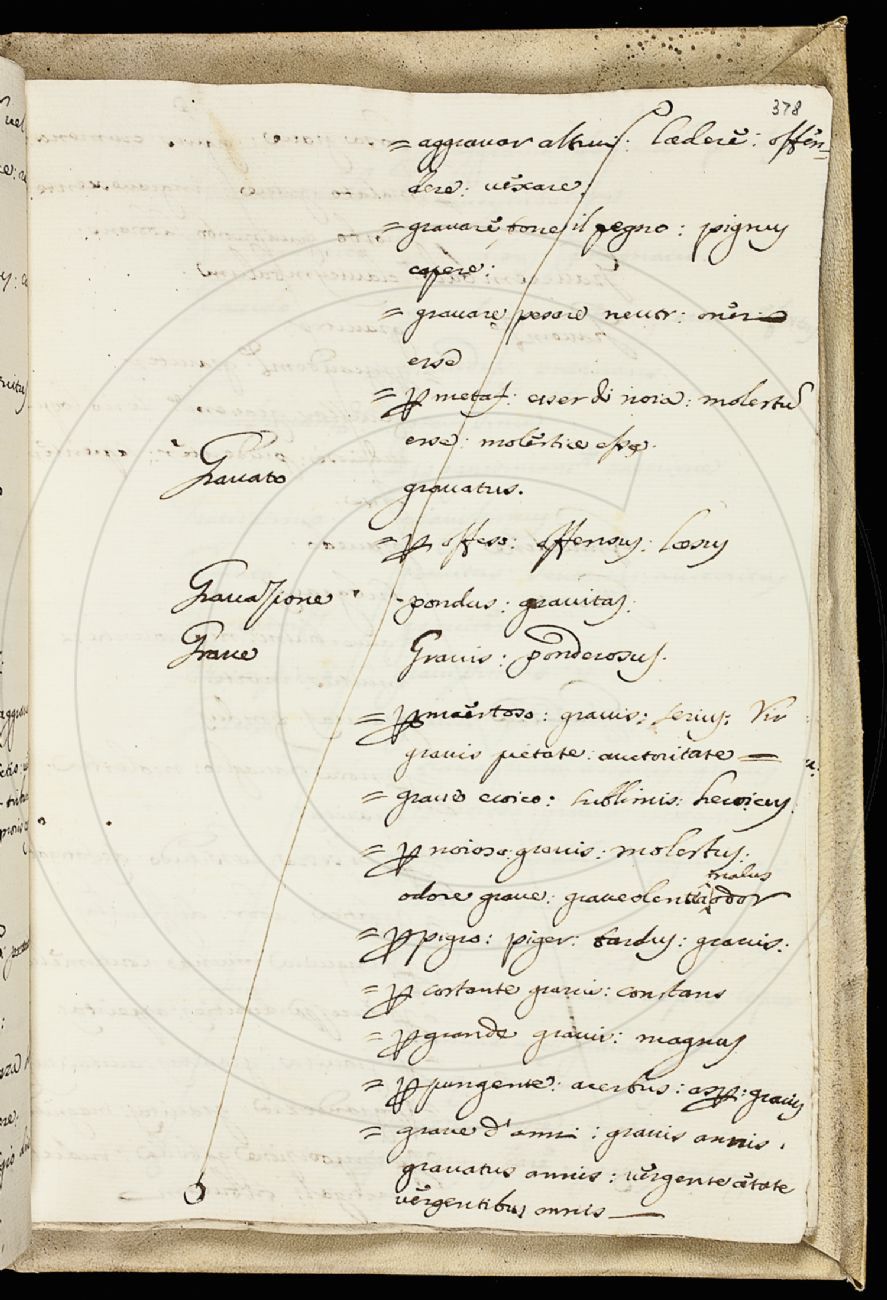 378
= aggravar altrui: lædere: offen-
dere: vexare.
= gravare torre il pegno: pignus
capere:
= gravare pesare neutr: oneri
esse
= p metaf: esser di noia: molestum
esse: molestiæ esse.
Gravato gravatus.
= p offeso: offensus: læsus
Gravazione - pondus: gravitas:
Grave Gravis: ponderosus.
= p maestoso: gravis: serius: Vir
gravis pietate: auctoritate —
= grave eroico: sublimis: heroicus.
= p noioso: gravis: molestus:
malus
odore grave: graveolentia odor
= p pigro: piger: tardus: gravis:
= p costante gravis: constans
= p grande gravis: magnus
= p pungente: acerbus: asp: gravis
= grave d'anni: gravis annis.
gravatus annis: vergente ætate
vergentibus annis —